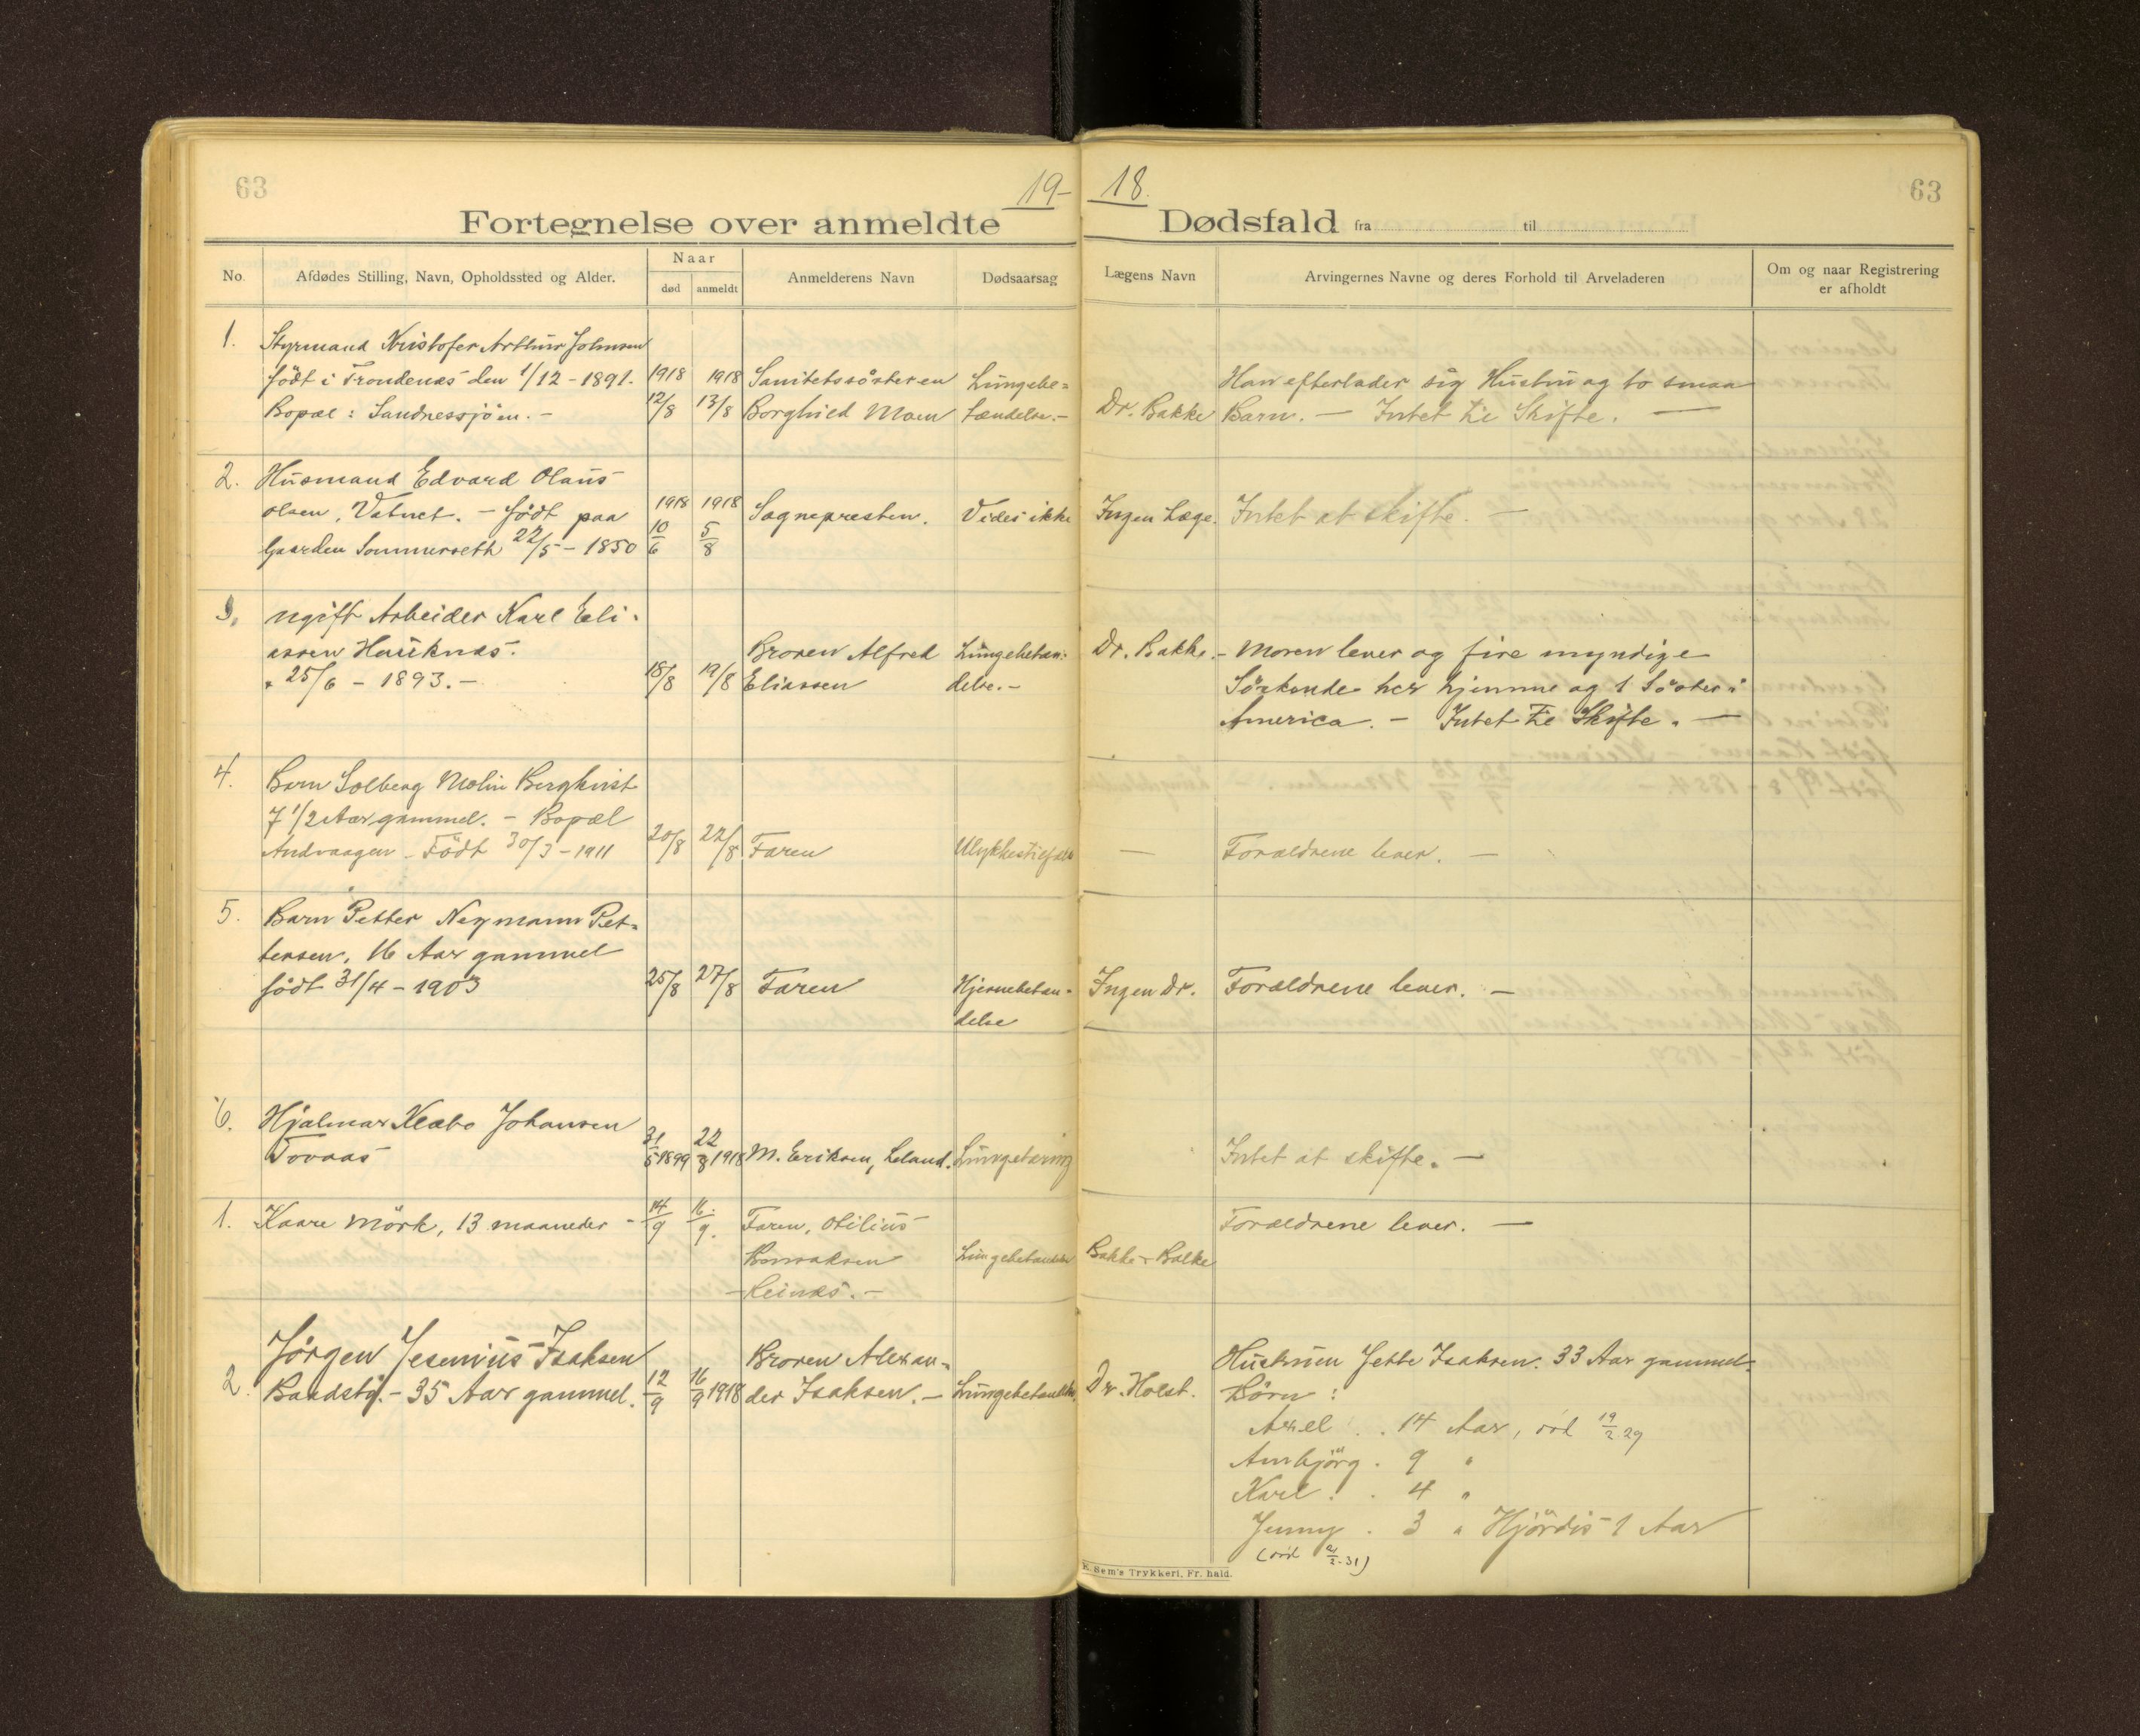 63
19-
18.
63
Fortegnelse over anmeldte
Dødsfald fra til
No.
Afdødes Stilling, Navn, Opholdssted og Alder.
Naar
død
anmeldt
Anmelderens Navn
Dødsaarsag
Lægens Navn
Arvingernes Navne og deres Forhold til Arveladeren
Om og naar Registrering
er afholdt
1.
Styrmand Kristofer Arthur Johnsen
født i Trondenæs den 1/12 - 1891.
Bopæl: Sandnessjöen. -
1918
12/8
1918
13/8
Sanitetssösteren
Borghild Moen
Lungebe=
tændelse. -
Dr. Bakke
Han efterlader sig Hustru og to smaa
Barn. - Intet til Skifte. -
2.
Husmand Edvard Olaus
Olsen, Vatnet. - født paa
Gaarden Sommerseth 22/5 - 1850
1918
10/6
1918
5/8
Sognepresten.
Vides ikke
Ingen Læge.
Intet at skifte. -
3.
Ugift Arbeider Karl Eli-
assen Hauknæs.
25/6 - 1893. -
18/8
19/8
Broren Alfred
Eliassen
Lungebetæn-
delse. -
Dr. Bakke. -
Moren lever og fire myndige
Söskende her hjemme og 1 Söster i
America. - Intet til Skifte. -
4.
Barn Solberg Molin Bergkvist
7 1/2 Aar gammel. - Bopæl
Andvaagen - Född 30/3 - 1911
20/8
22/8
Faren
Ulykkestilfæld
-
Forældrene lever. -
5.
Barn Petter Neymann Pet-
tersen, 16 Aar gammel
født 31/4 - 1903
25/8
27/8
Faren
Hjernebetæn-
delse
Ingen Dr.
Forældrene lever. -
6.
Hjalmar Klæbo Johansen
Tovaas
31/5 1899
22/8 1918
M. Eriksen, Leland.
Lungetæring
Intet at skifte. -
1.
Kaare Mörk, 13 maaneder -
14/9
16./9.
Faren, Otilius
- Leinæs. -
Lungebetændelse
Bakke - Balke
Forældrene lever. -
2.
Jørgen Jesenius Isaksen
Baadstø. - 35 Aar gammel.
12/9
16/9 1918
Broren Alexan-
der Isaksen. -
Lungebetændelse.
Dr. Holst.
Hustruen Jette Isaksen. 33 Aar gammel.
Börn:
Axel . . 14 Aar, död 19/2 29
Annbjörg . 9 "
Karl . . 4 "
Jenny . 3 " Hjördis 1 Aar
E. Sem's Trykkeri, Fr. hald.